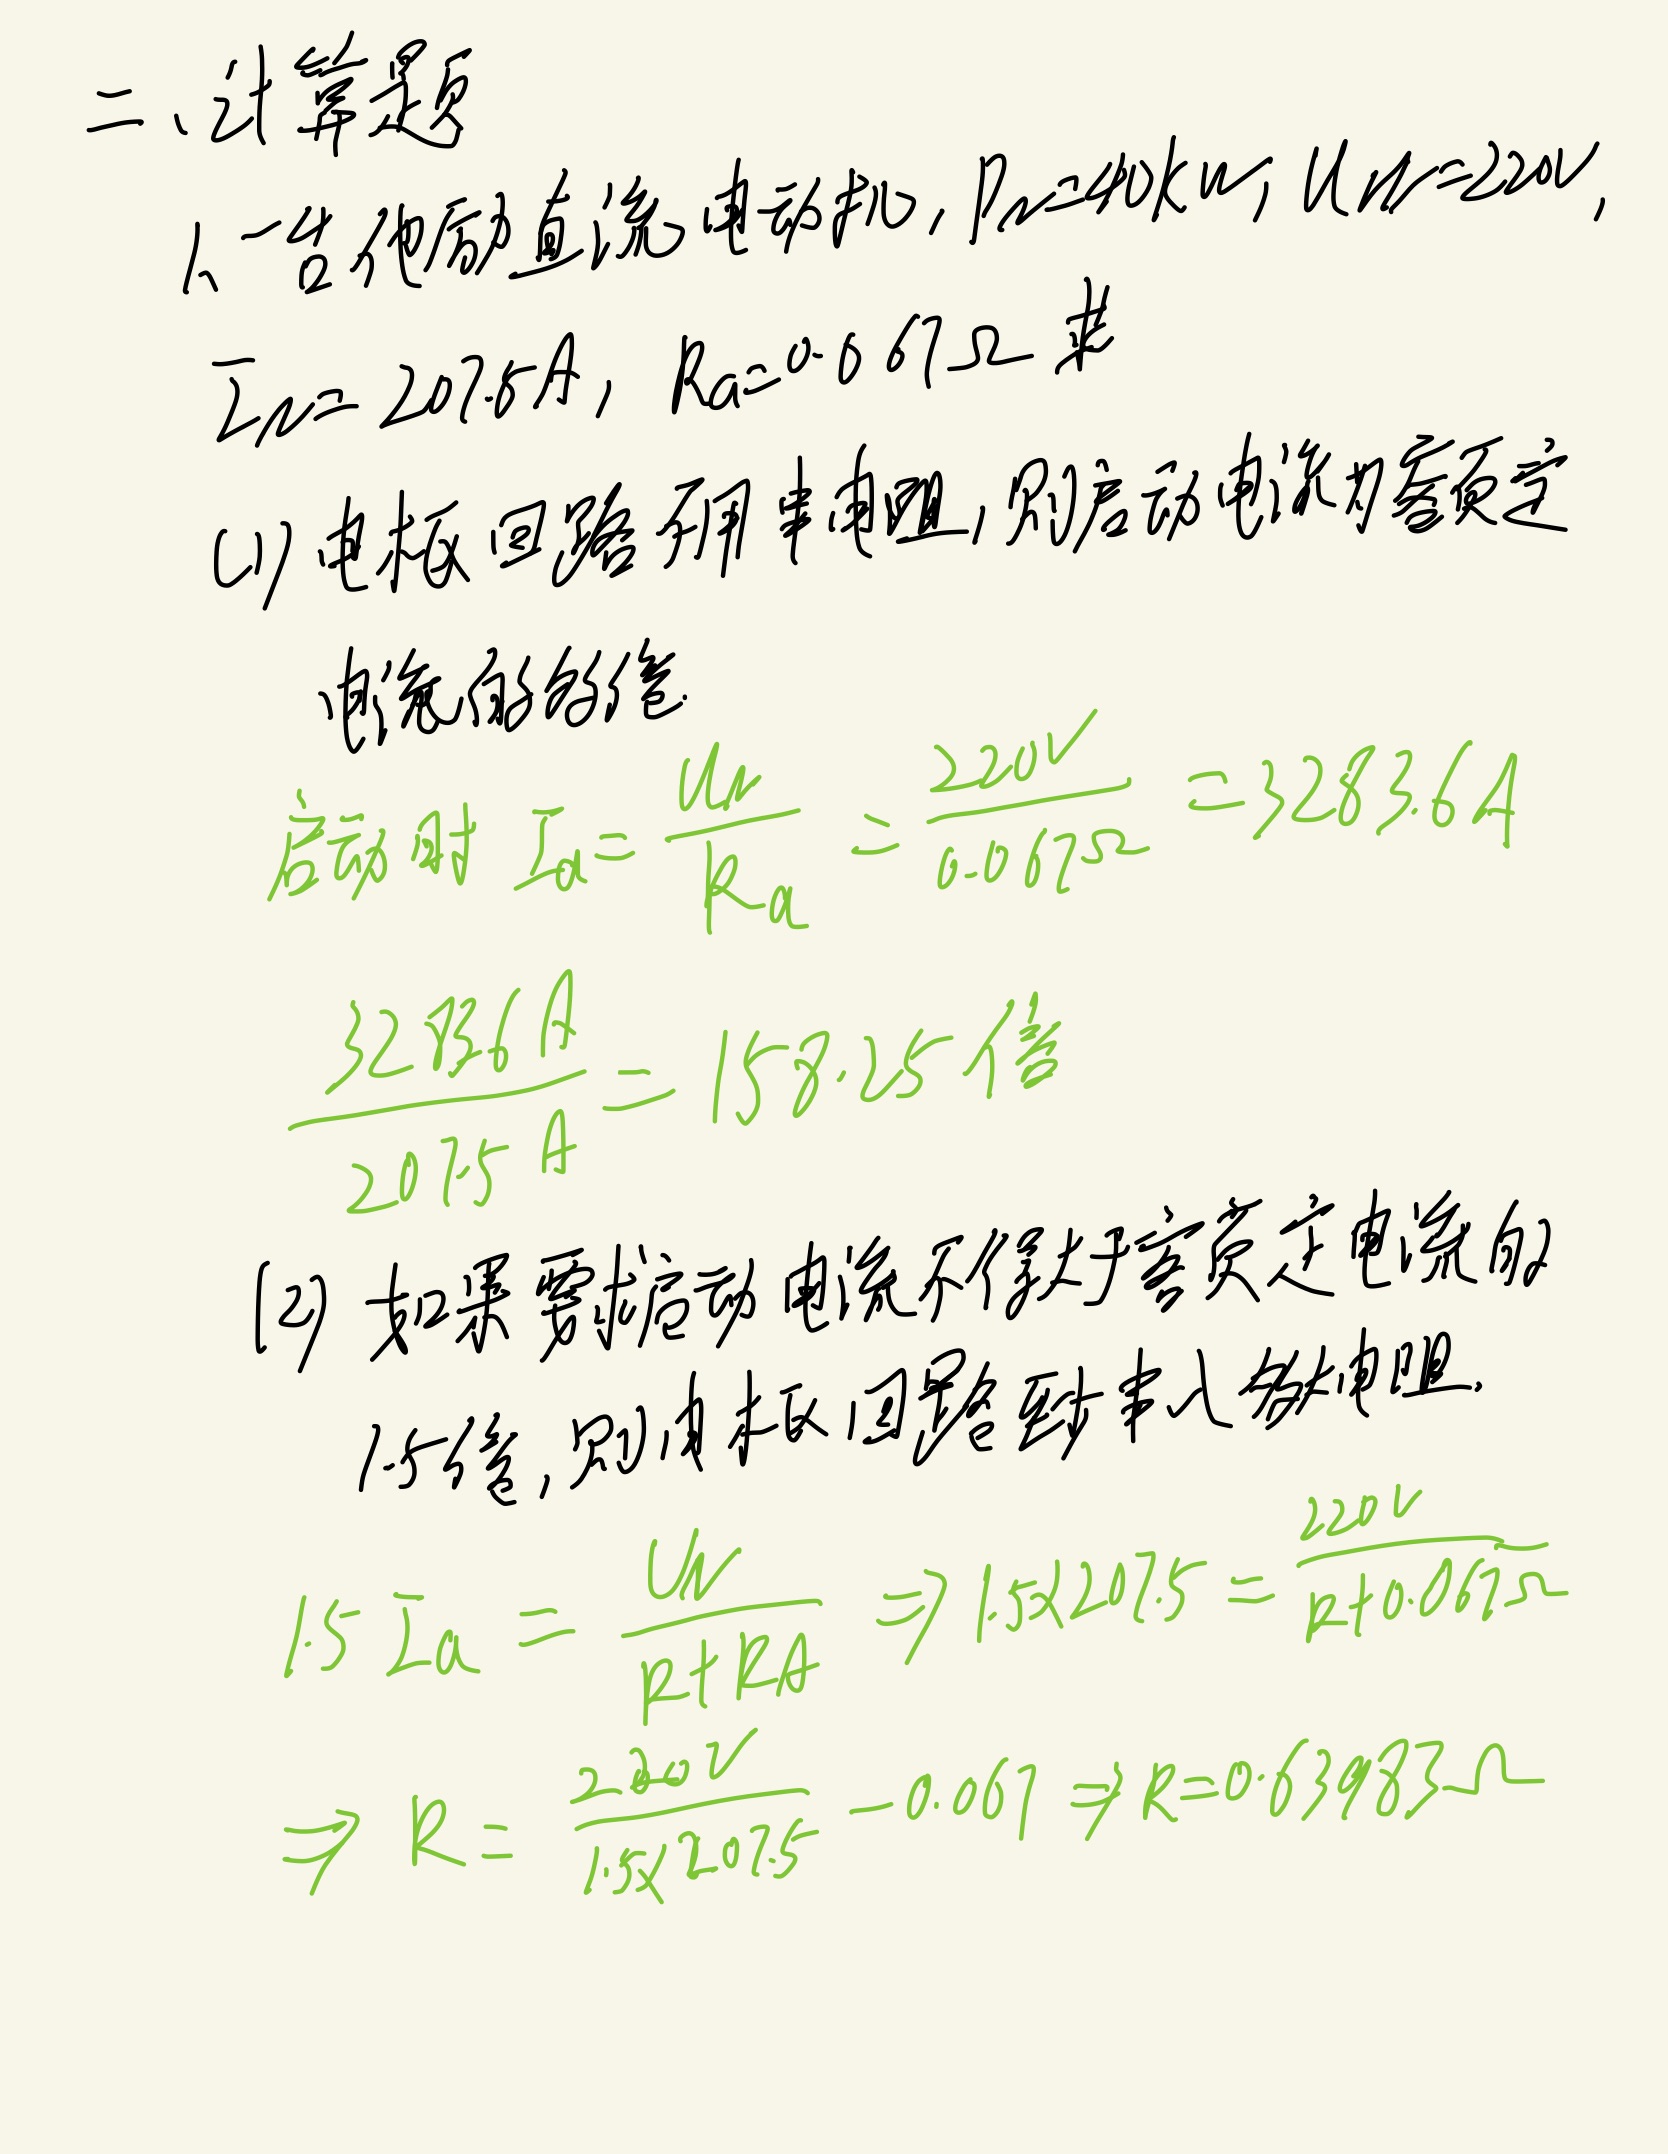 二、计算题
1、一台他励直流电动机, PN=40kW, UN=220V,
IN=207.5A, Ra=0.067Ω 求
(1) 电枢回路不用串电阻,则启动电流为额定
电流的的倍.
启动时 Ia = UN/Ra = 220V/0.067Ω = 3283.6A
3283.6A/207.5A = 158.25倍
(2) 如果要求启动电流不得大于额定电流的
1.5倍,则电枢回路至少串入多大电阻.
1.5 Ia = UN/R+RA ⇒ 1.5×207.5 = 220V/R+0.067Ω
⇒ R = 220V/1.5×207.5 - 0.067 ⇒ R=0.63983Ω